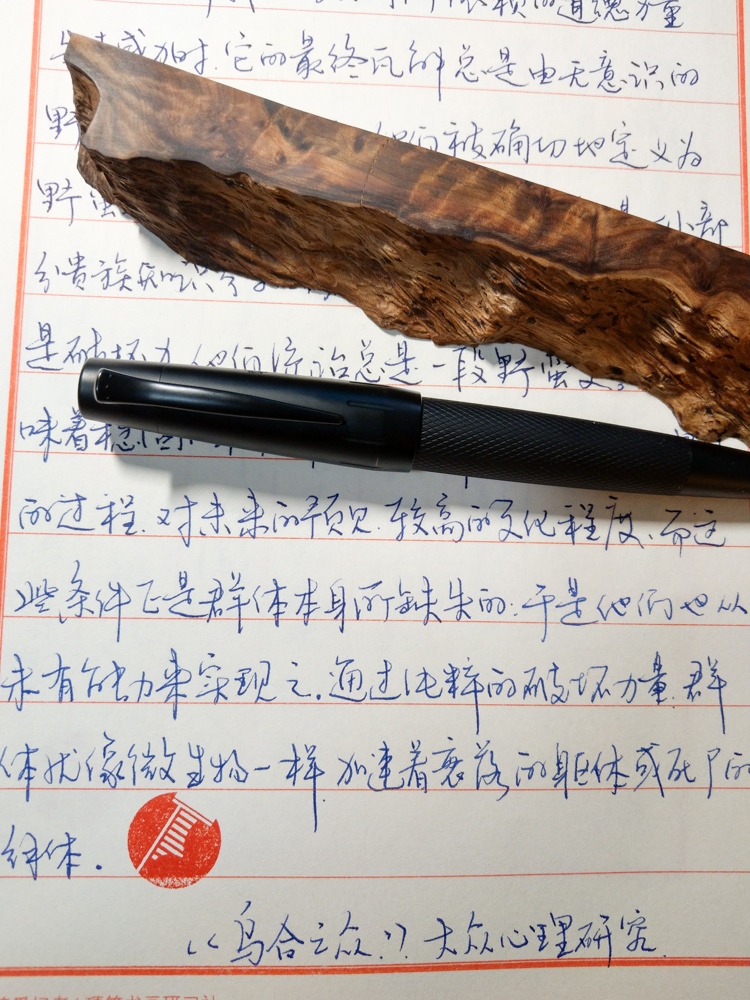 的道德力量
时.它的最终瓦解总是由无意识的
野 他们被确切地定义为
野蛮 是一小部
分贵族
是破坏力.他们统治总是一段野蛮
味着稳固
的过程.对未来的预见.较高的文化程度.而这
些条件正是群体本身所缺失的;于是他们也从
未有能力来实现之.通过纯粹的破坏力量.群
体犹像微生物一样加速着衰落的躯体或死尸的
解体.
《乌合之众》大众心理研究